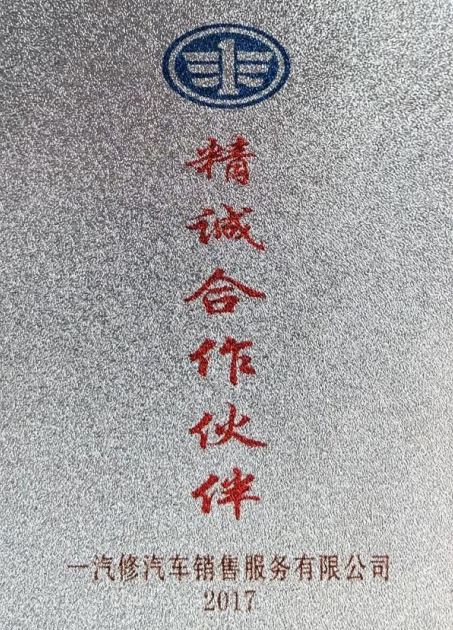 精诚合作伙伴
一汽修汽车销售服务有限公司
2017